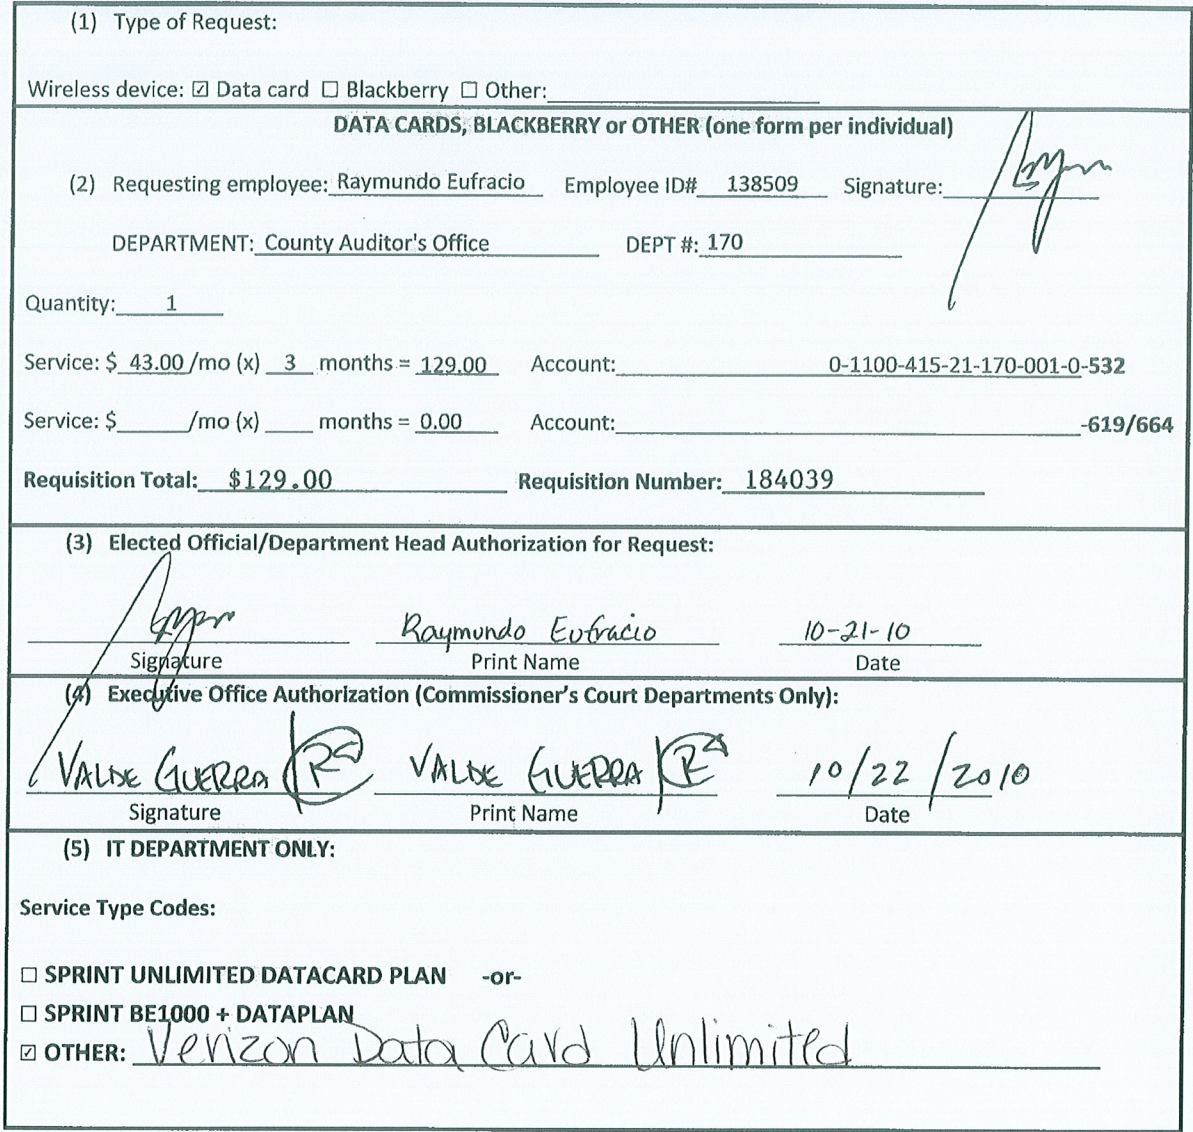 (1) Type of Request:
Wireless device: ☑ Data card ☐ Blackberry ☐ Other:
DATA CARDS, BLACKBERRY or OTHER (one form per individual)
(2) Requesting employee: Raymundo Eufracio Employee ID# 138509 Signature:
DEPARTMENT: County Auditor's Office DEPT #: 170
Quantity: 1
Service: $ 43.00 /mo (x) 3 months = 129.00 Account: 0-1100-415-21-170-001-0-532
Service: $ /mo (x) months = 0.00 Account: -619/664
Requisition Total: $129.00 Requisition Number: 184039
(3) Elected Official/Department Head Authorization for Request:
Raymundo Eufracio 10-21-10
Signature Print Name Date
(4) Executive Office Authorization (Commissioner's Court Departments Only):
VALDE GUERRA VALDE GUERRA 10/22/2010
Signature Print Name Date
(5) IT DEPARTMENT ONLY:
Service Type Codes:
☐ SPRINT UNLIMITED DATACARD PLAN -or-
☐ SPRINT BE1000 + DATAPLAN
☑ OTHER: Verizon Data Card Unlimited